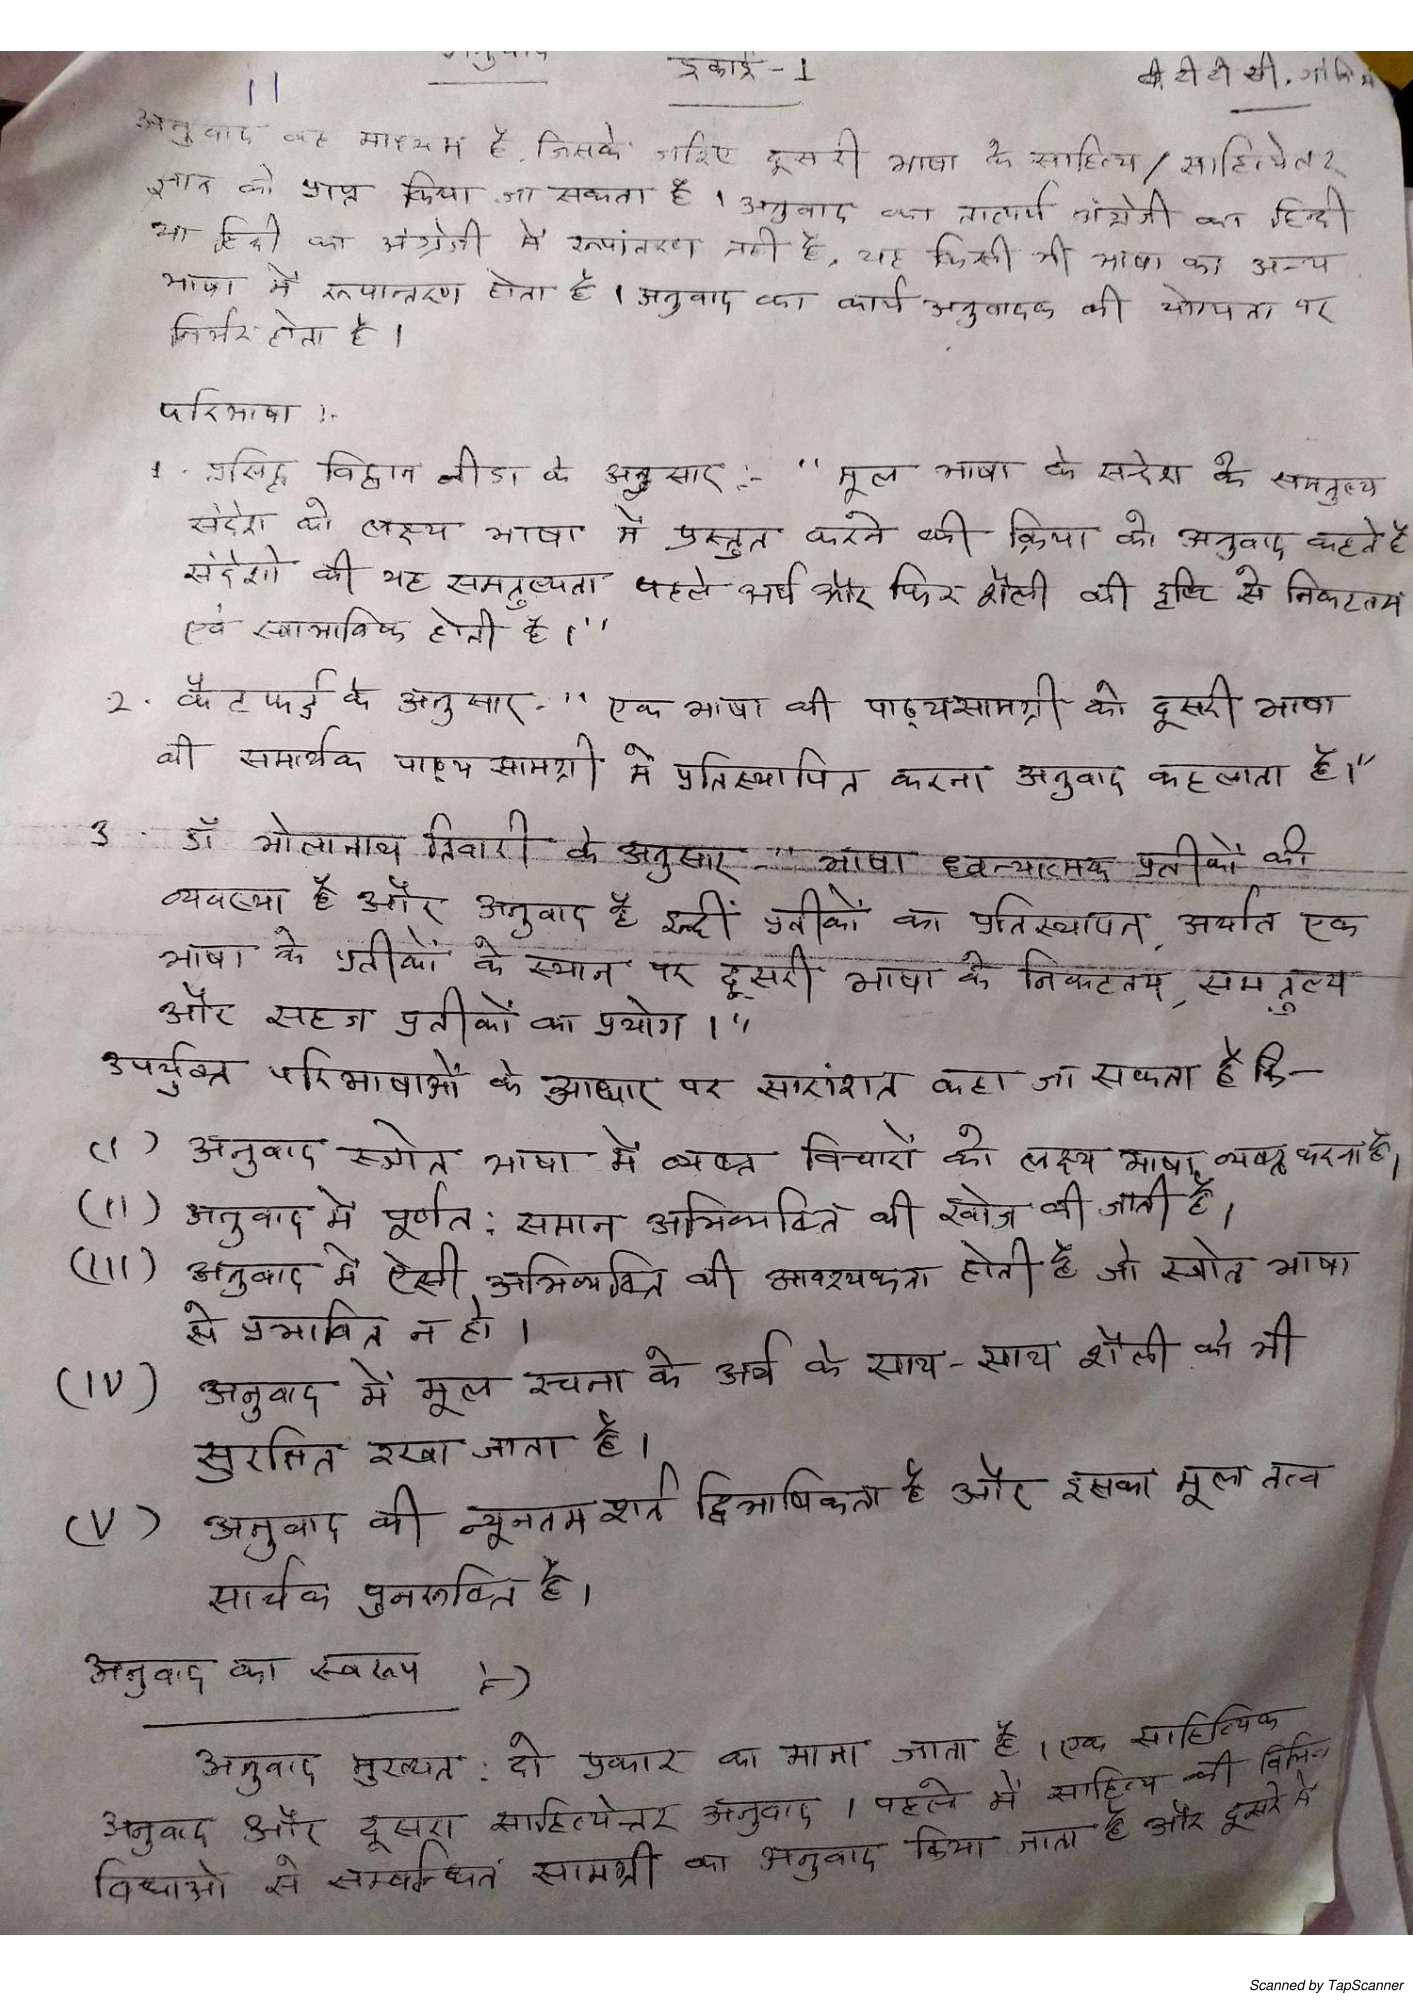 अनुवाद
इकाई - 1
11
अनुवाद वह माध्यम है, जिसके जरिए दूसरी भाषा के साहित्य / साहित्येतर
ज्ञान को प्राप्त किया जा सकता है । अनुवाद का तात्पर्य अंग्रेजी का हिन्दी
या हिंदी का अंग्रेजी में रूपांतरण नहीं है, यह किसी भी भाषा का अन्य
भाषा में रूपान्तरण होता है । अनुवाद का कार्य अनुवादक की योग्यता पर
निर्भर होता है ।
परिभाषा :-
1. प्रसिद्ध विद्वान नीडा के अनुसार :- "मूल भाषा के सन्देश के समतुल्य
संदेश को लक्ष्य भाषा में प्रस्तुत करने की क्रिया को अनुवाद कहते है
संदेशो की यह समतुल्यता पहले अर्थ और फिर शैली की दृष्टि से निकटतम
एवं स्वाभाविक होती है ।"
2. कैटफर्ड के अनुसार - "एक भाषा की पाठ्यसामग्री को दूसरी भाषा
की समार्थक पाठ्य सामग्री मे प्रतिस्थापित करना अनुवाद कहलाता है।"
3. डॉ भोलानाथ तिवारी के अनुसार - "भाषा ध्वन्यात्मक प्रतीकों की
व्यवस्था है और अनुवाद है इन्हीं प्रतीकों का प्रतिस्थापन, अर्थात एक
भाषा के प्रतीकों के स्थान पर दूसरी भाषा के निकटतम, समतुल्य
और सहज प्रतीकों का प्रयोग ।"
उपर्युक्त परिभाषाओं के आधार पर सारांशत कहा जा सकता है कि -
(I) अनुवाद स्त्रोत भाषा में व्यक्त विचारों को लक्ष्य भाषा व्यक्त करना है।
(II) अनुवाद में पूर्णत: समान अभिव्यक्ति की खोज की जाती है।
(III) अनुवाद में ऐसी अभिव्यक्ति की आवश्यकता होती है जो स्त्रोत भाषा
से प्रभावित न हो ।
(IV) अनुवाद में मूल रचना के अर्थ के साथ - साथ शैली को भी
सुरक्षित रखा जाता है ।
(V) अनुवाद की न्यूनतम शर्त द्विभाषिकता है और इसका मूल तत्व
सार्थक पुनरूक्ति है ।
अनुवाद का स्वरूप :-)
अनुवाद मुख्यत: दो प्रकार का माना जाता है । एक साहित्यिक
अनुवाद और दूसरा साहित्येत्तर अनुवाद । पहले में साहित्य की विभिन्न
विधाओ से सम्बन्धित सामग्री का अनुवाद किया जाता है और दूसरे में
Scanned by TapScanner